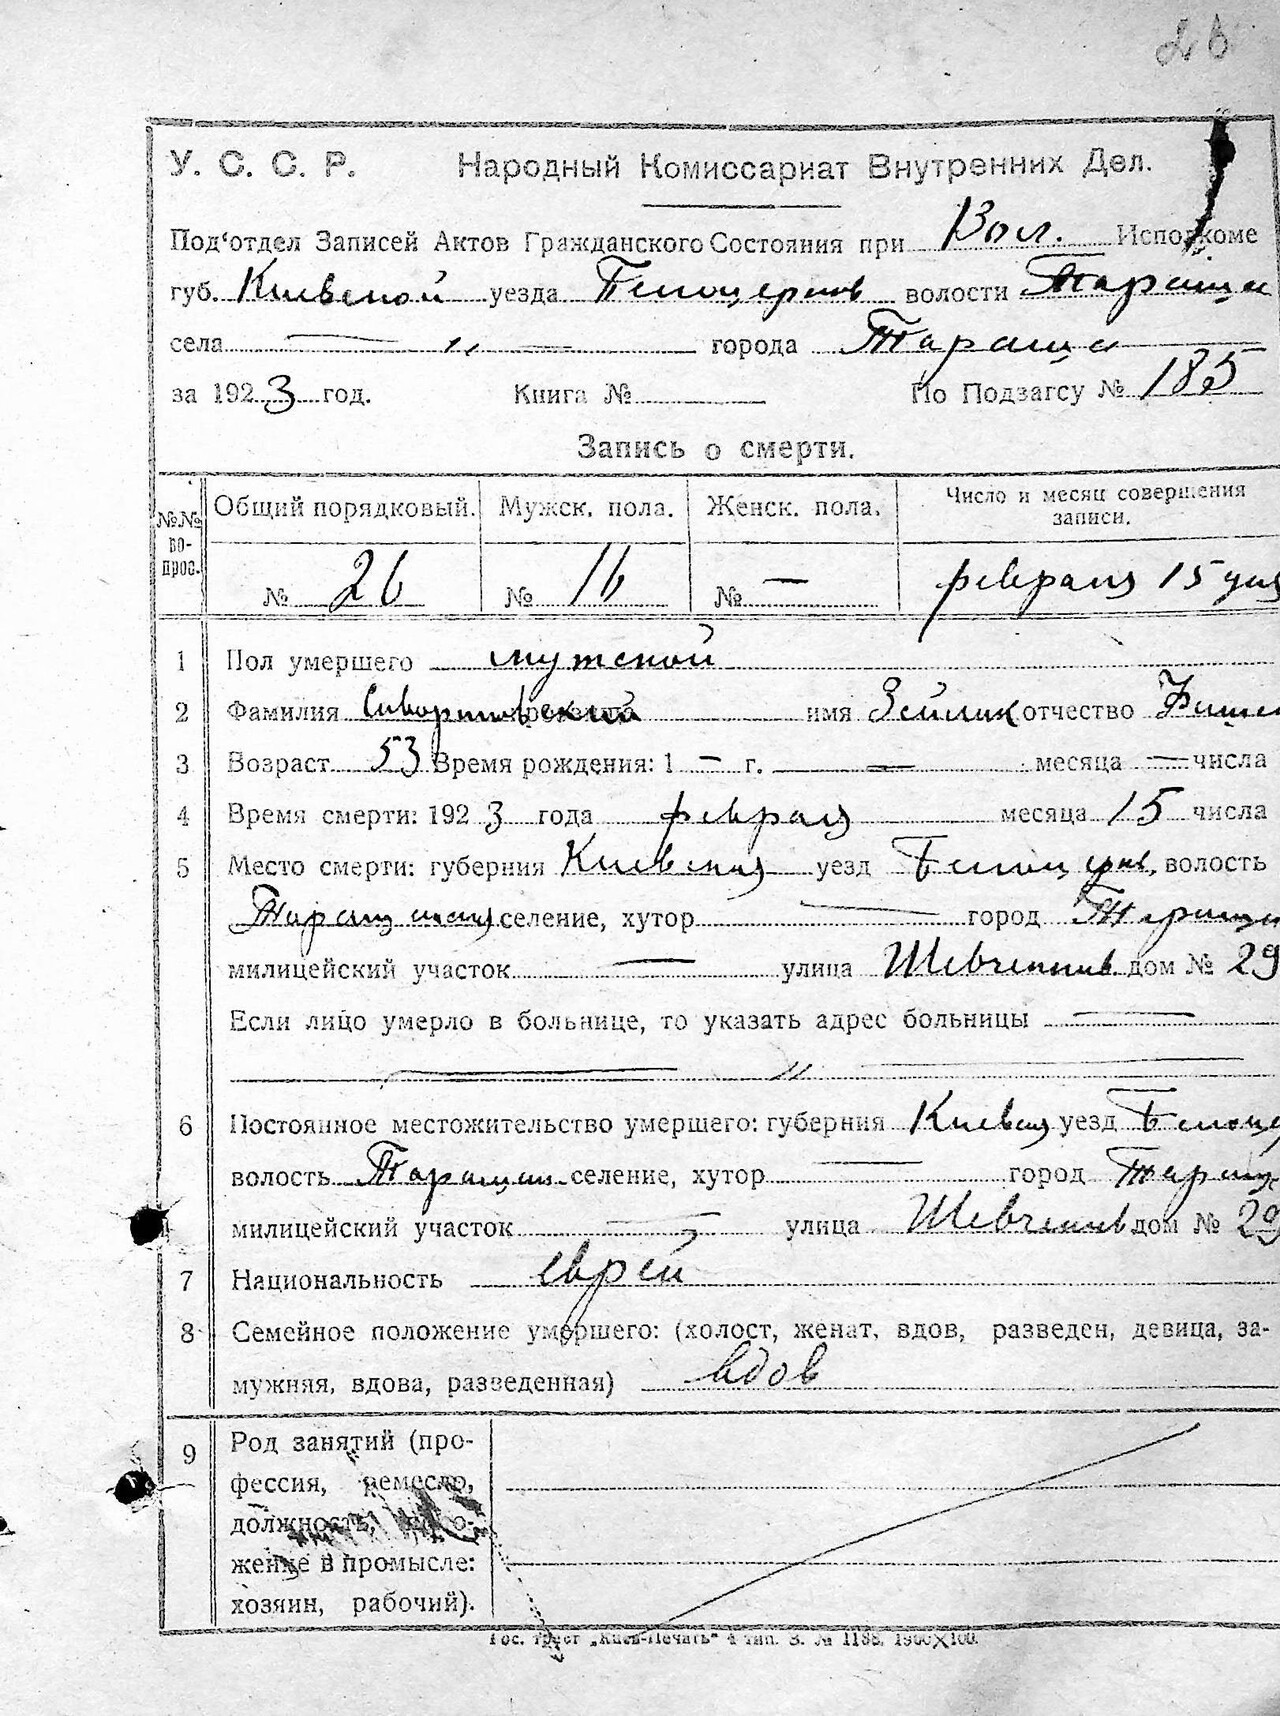 26
У. С. С. Р. Народный Комиссариат Внутренних Дел.
Под'отдел Записей Актов Гражданского Состояния при Вол. Исполкоме
губ. Киевской уезда Белоцерков волости Тараща
села — „ — города Тараща
за 1923 год. Книга № По Подзагсу № 185
Запись о смерти.
№№ вопрос. Общий порядковый. Мужск. пола. Женск. пола. Число и месяц совершения записи.
№ 26 № 16 № — февраля 15 дня
1 Пол умершего мужской
2 Фамилия имя Зейлик отчество
3 Возраст 53 Время рождения: 1 — г. — месяца — числа
4 Время смерти: 1923 года февраля месяца 15 числа
5 Место смерти: губерния Киевская уезд Белоцерков. волость
Таращанская селение, хутор — город Тараща
милицейский участок — улица Шевченков дом № 29
Если лицо умерло в больнице, то указать адрес больницы —
— „ —
6 Постоянное местожительство умершего: губерния Киевская уезд Белоцер
волость Таращан селение, хутор — город Тараща
милицейский участок — улица Шевченков дом № 29
7 Национальность еврей
8 Семейное положение умершего: (холост, женат, вдов, разведен, девица, за-
мужняя, вдова, разведенная) вдов
9 Род занятий (про-
фессия, ремесло,
должность, поло-
жение в промысле:
хозяин, рабочий).
Гос. трест „Киев-Печать" 4 тип. З. № 1188. 1900✕100.